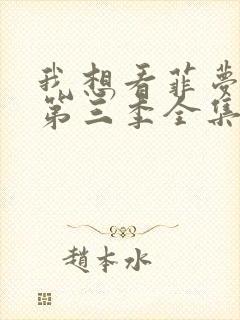 我想看菲梦
第三季全集
趙本水